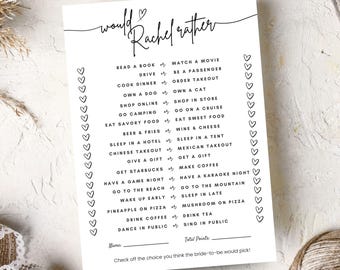 would Rachel rather
READ A BOOK or WATCH A MOVIE
DRIVE or BE A PASSENGER
COOK DINNER or ORDER TAKEOUT
OWN A DOG or OWN A CAT
SHOP ONLINE or SHOP IN STORE
GO CAMPING or GO ON A CRUISE
EAT SAVORY FOOD or EAT SWEET FOOD
BEER & FRIES or WINE & CHEESE
SLEEP IN A HOTEL or SLEEP IN A TENT
CHINESE TAKEOUT or MEXICAN TAKEOUT
GIVE A GIFT or GET A GIFT
GET STARBUCKS or MAKE COFFEE
HAVE A GAME NIGHT or HAVE A KARAOKE NIGHT
GO TO THE BEACH or GO TO THE MOUNTAIN
WAKE UP EARLY or SLEEP IN LATE
PINEAPPLE ON PIZZA or MUSHROOM ON PIZZA
DRINK COFFEE or DRINK TEA
DANCE IN PUBLIC or SING IN PUBLIC
Name: Total Points:
Check off the choice you think the bride-to-be would pick!